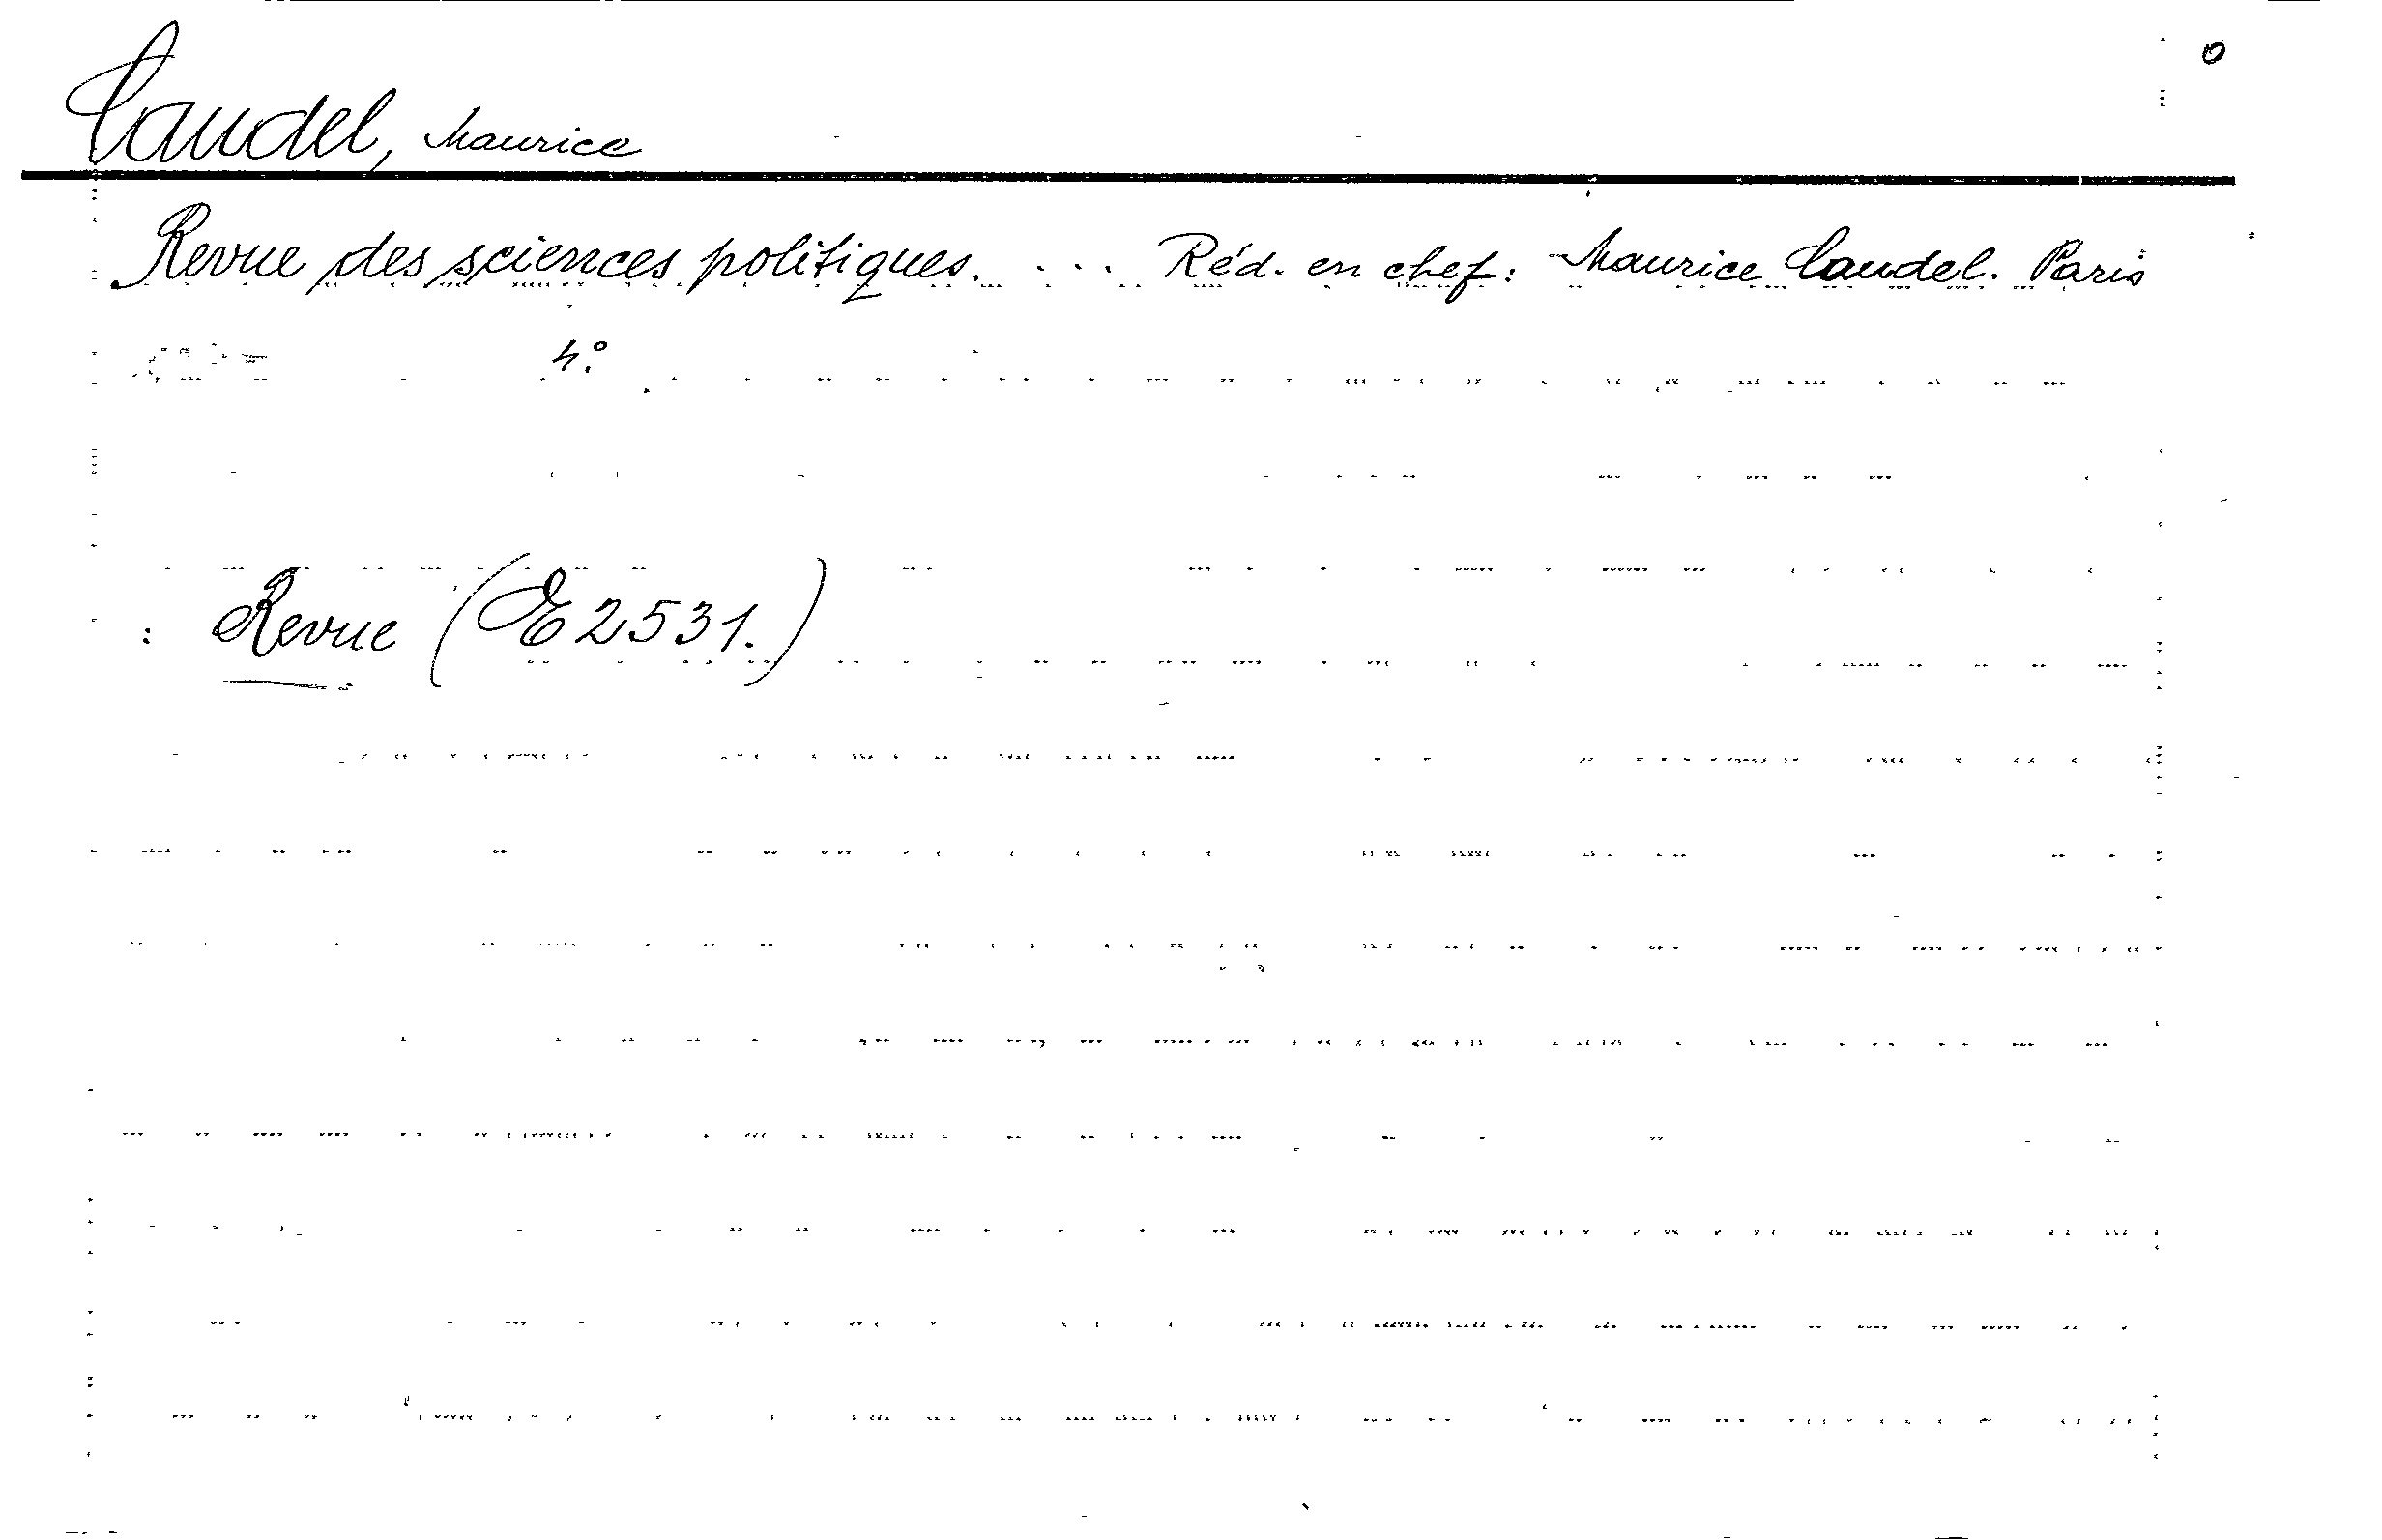 o
Caudel, Maurice
Revue des sciences politiques. ... Réd. en chef: Maurice Caudel. Paris
4:o
: Revue (E 2531.)